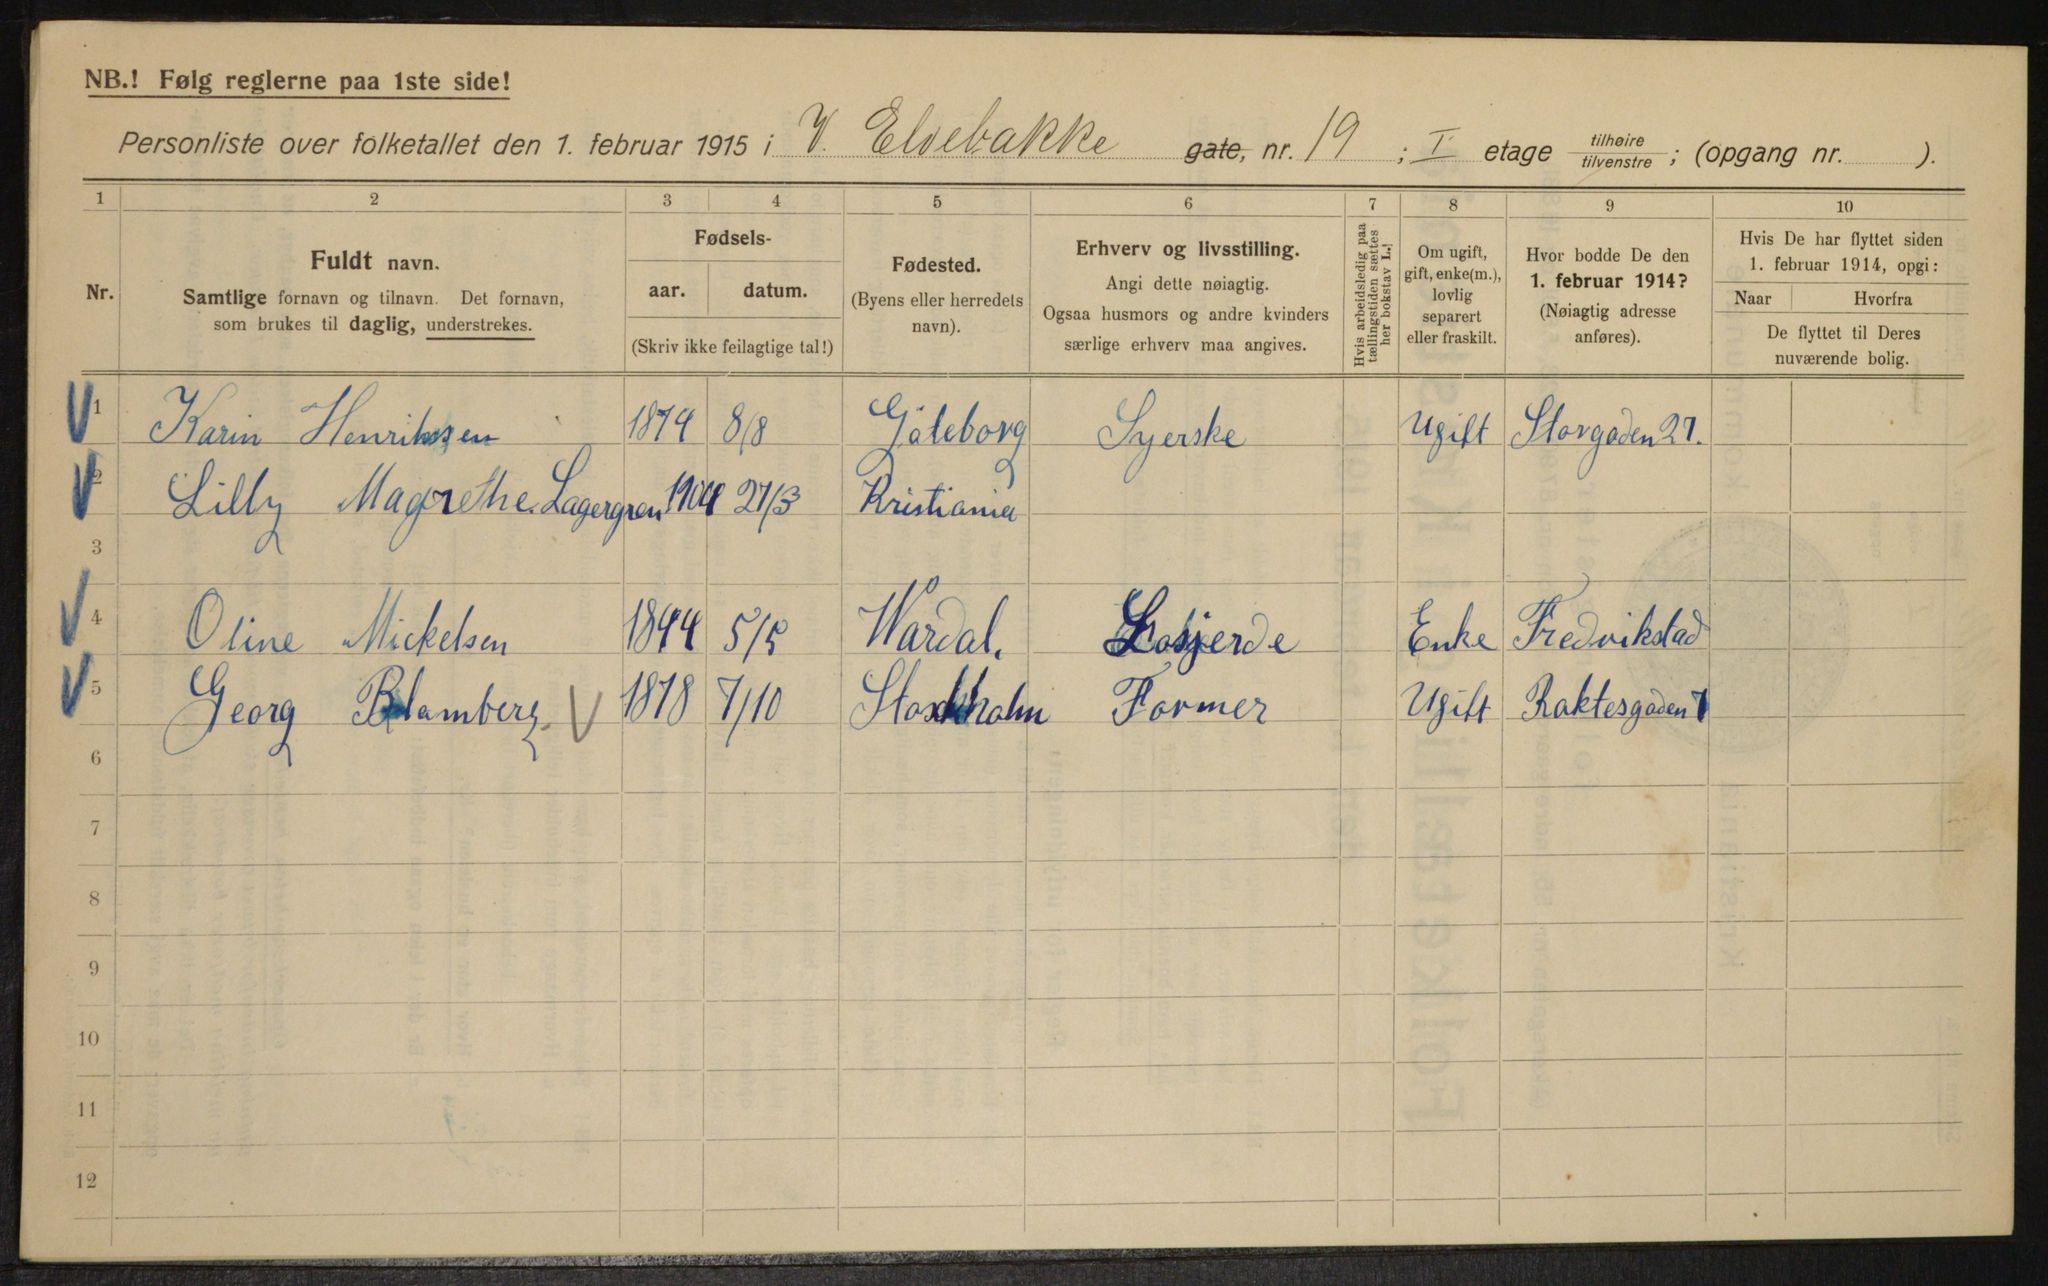 NB.! Følg reglerne paa 1ste side!
Personliste over folketallet den 1. februar 1915 i V. Elvebakke gate, nr. 19 ; I etage tilhøire tilvenstre ; (opgang nr. ).
1 2 3 4 5 6 7 8 9 10
Nr.
Fuldt navn.
Samtlige fornavn og tilnavn. Det fornavn,
som brukes til daglig, understrekes.
Fødsels-
aar. datum.
(Skriv ikke feilagtige tal!)
Fødested.
(Byens eller herredets
navn).
Erhverv og livsstilling.
Angi dette nøiagtig.
Ogsaa husmors og andre kvinders
særlige erhverv maa angives.
Hvis arbeidsledig paa
tællingstiden sættes
her bokstav L.!
Om ugift,
gift, enke(m.),
lovlig
separert
eller fraskilt.
Hvor bodde De den
1. februar 1914?
(Nøiagtig adresse
anføres).
Hvis De har flyttet siden
1. februar 1914, opgi:
Naar Hvorfra
De flyttet til Deres
nuværende bolig.
V 1 Karin Henriksen 1874 8/8 Göteborg Syerske Ugift Storgaden 27.
V 2 Lilly Magrethe Lagergren 1904 27/3 Kristiania
3
V 4 Oline Mickelsen 1844 5/5 Wardal. Losjerde Enke Fredrikstad
V 5 Georg Blamberg V 1878 7/10 Stockholm Former Ugift
6
7
8
9
10
11
12